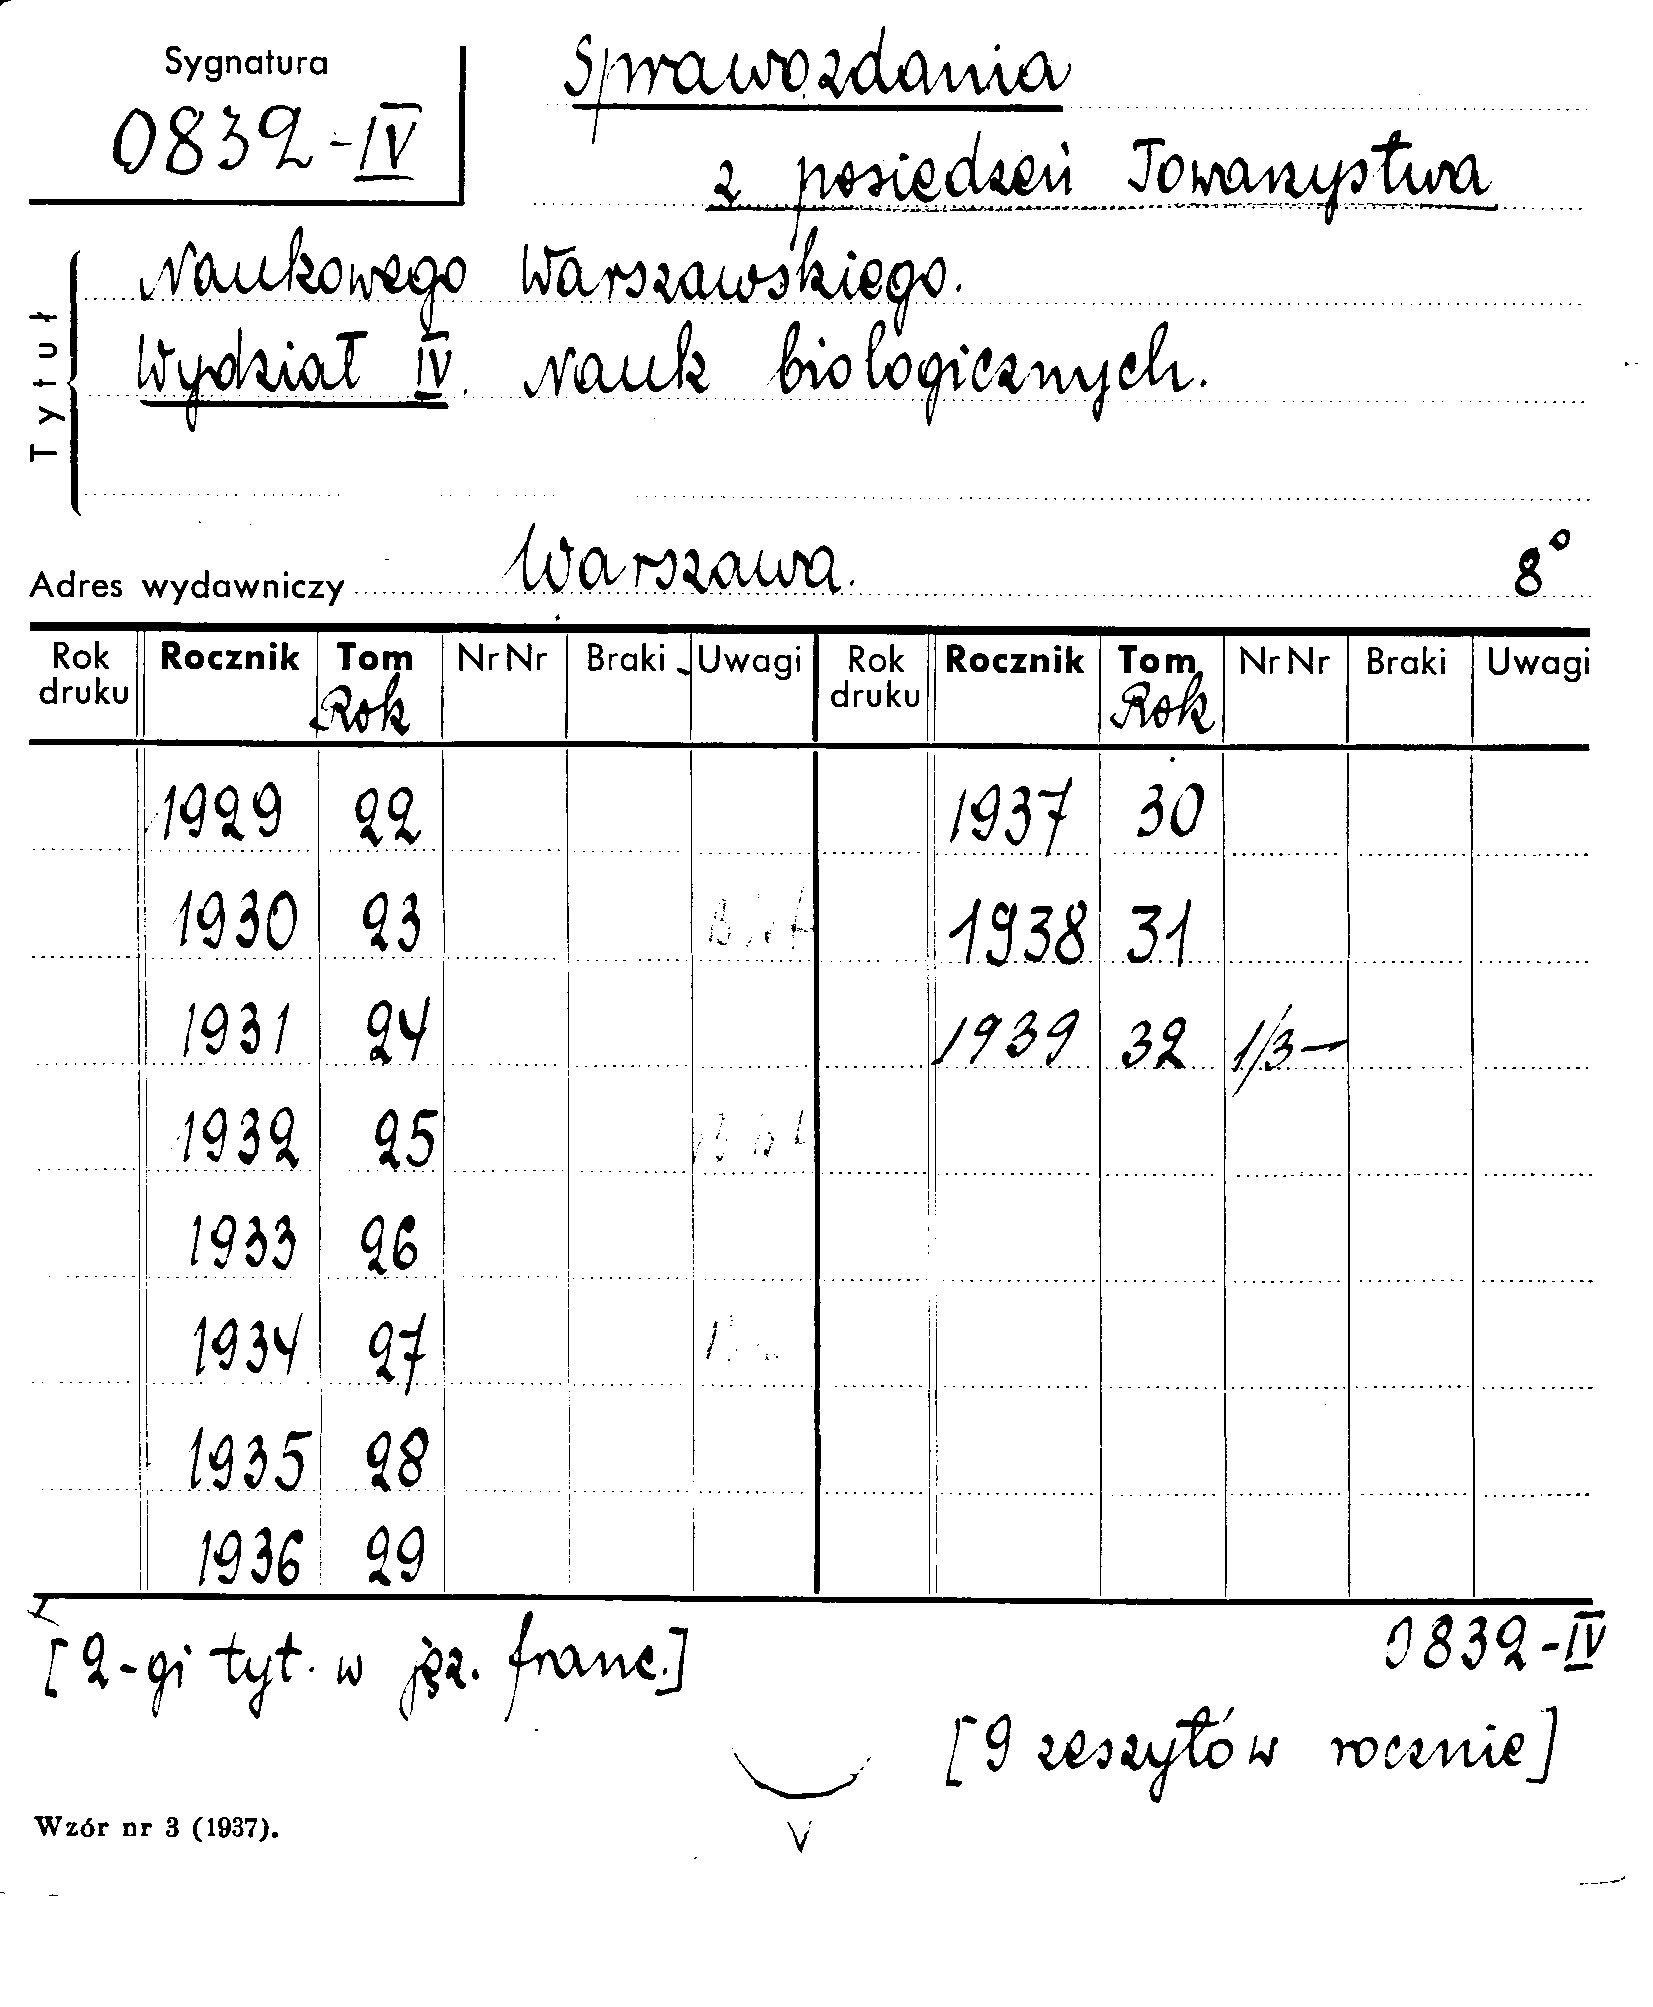 Sygnatura
0832-IV
Sprawozdania
z posiedzeń Towarzystwa
Tytuł
Naukowego Warszawskiego.
Wydział IV. Nauk biologicznych.
Adres wydawniczy Warszawa. 8°
Rok druku Rocznik Tom Rok Nr Nr Braki Uwagi Rok druku Rocznik Tom Rok Nr Nr Braki Uwagi
1929 22 1937 30
1930 23 1938 31
1931 24 1939 32 1/3—
1932 25
1933 26
1934 27
1935 28
1936 29
[2-gi tyt. w jęz. franc.]
0832-IV
[9 zeszytów rocznie]
V
Wzór nr 3 (1937).